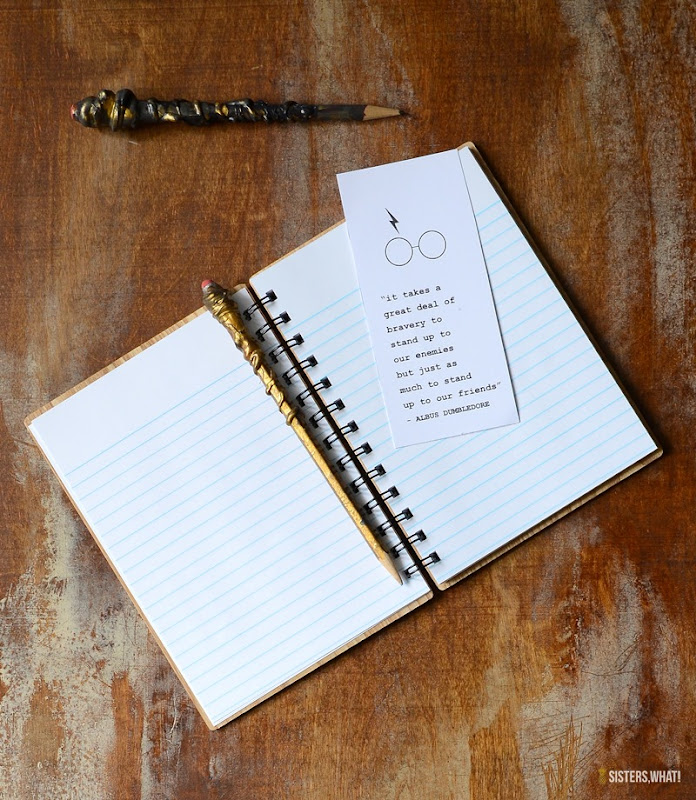 "it takes a
great deal of
bravery to
stand up to
our enemies
but just as
much to stand
up to our friends"
- ALBUS DUMBLEDORE
SISTERS,WHAT!